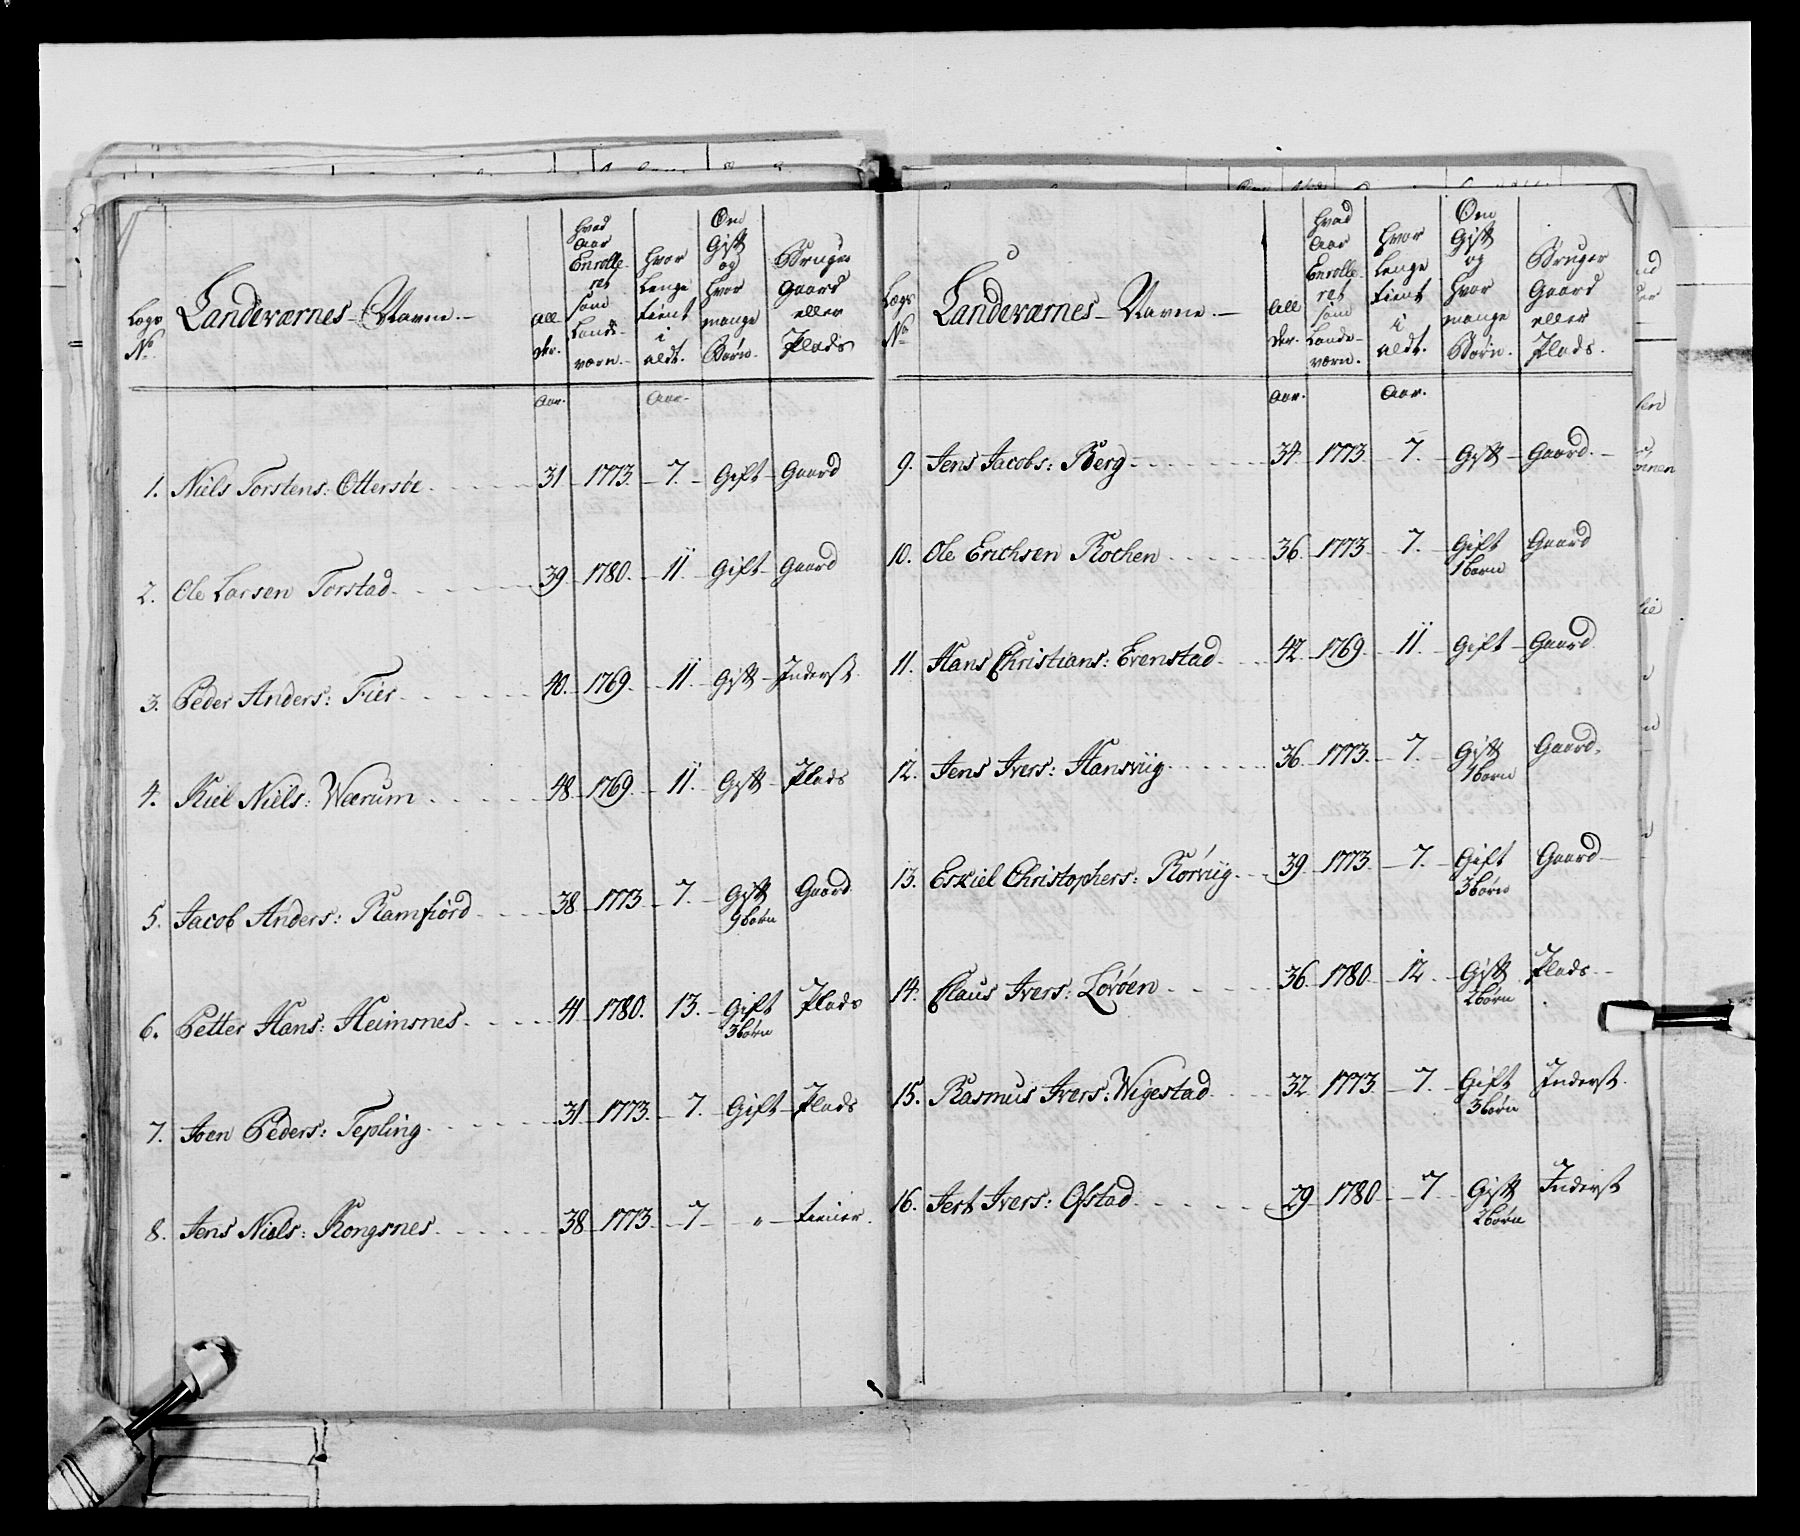 Lægs No | Landeværnes Navne. | All der. | Hvad Aar Enrolleret som Landeværn. | Hvor Længe tient i aldt. | Om Gift og Hvor mange Børn. | Bruger Gaard eller Plads
Aar. | Aar.
1. Niels Torstens: Ottersøe 31 1773 7. Gift Gaard
2. Ole Larsen Torstad 39 1780. 11. Gift Gaard
3. Peder Anders: Fier 40. 1769. 11. Gift Inderst.
4. Kiel Niels: Wærum 48 1769. 11. Gift Plads
5. Jacob Anders: Ramfiørd 38 1773 7. Gift Gaard
9 børn
6. Petter Hans: Heimsnes 41 1780. 13. Gift Plads
3 børn
7. Joen Peders: Tepling 31 1773. 7. Gift Plads
8. Jens Niels: Kongsnes 38 1773 7 " tiener.
Lægs No | Landeværnes Navne. | All der. | Hvad Aar Enrolleret som Landeværn. | Hvor Længe tient i aldt. | Om Gift og Hvor mange Børn. | Bruger Gaard eller Plads.
Aar. | Aar.
9. Jens Jacobs: Berg 34 1773 7. Gift Gaard
10. Ole Erichsen Kochen 36 1773 7. Gift Gaard
1 barn
11. Hans Christians: Evenstad 42 1769. 11. Gift Gaard
12. Jens Ivers: Hansviig 36. 1773. 7. Gift Gaard.
1 barn
13. Eskiel Christophers: Rørviig 39 1773 7. Gift Gaard
3 børn
14. Claus Ivers: Lørøen 36 1780 12. Gift Plads
2 børn
15. Rasmus Ivers: Wigestad 32 1773 7. Gift Inderst.
3 børn
16. Jert Ivers: Ofstad 29 1780 7 Gift Inderst
2 børn